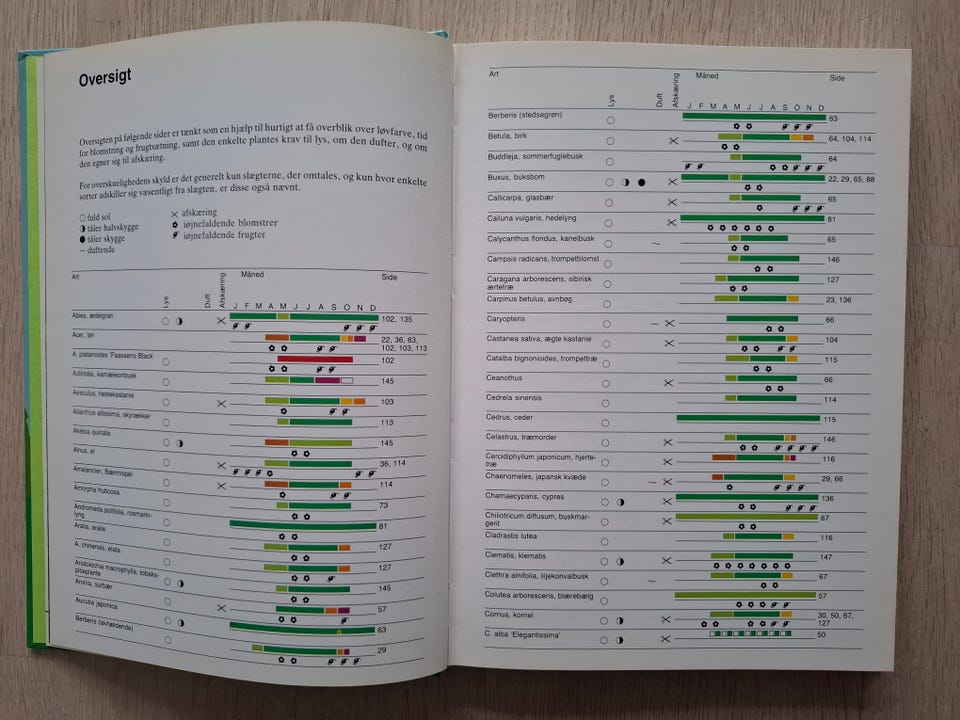 Oversigt
Oversigten på følgende sider er tænkt som en hjælp til hurtigt at få overblik over løvfarve, tid
for blomstring og frugtsætning, samt den enkelte plantes krav til lys, om den dufter, og om
den egner sig til afskæring.
For overskuelighedens skyld er det generelt kun slægterne, der omtales, og kun hvor enkelte
sorter adskiller sig væsentligt fra slægten, er disse også nævnt.
fuld sol
tåler halvskygge
tåler skygge
duftende
afskæring
iøjnefaldende blomstrer
iøjnefaldende frugter
Art Lys Duft Afskæring Måned Side
J F M A M J J A S O N D
Abies, ædelgran 102, 135
Acer, løn 22, 36, 63,
102, 103, 113
A. platanoides 'Faassens Black' 102
Actinidia, kamæleonbusk 145
Aesculus, hestekastanie 103
Ailanthus altissima, skyrækker 113
Akebia quinata 145
Alnus, el 36, 114
Amelancier, Bærmispel 114
Amorpha fruticosa 73
Andromeda polifolia, rosmarin-
lyng 81
Aralia, aralie 127
A. chinensis, elata 127
Aristolochia macrophylla, tobaks-
pibeplante 145
Aronia, surbær 57
Aucuba japonica 63
Berberis (løvfældende) 29
Art Lys Duft Afskæring Måned Side
J F M A M J J A S O N D
Berberis (stedsegrøn) 63
Betula, birk 64, 104, 114
Buddleja, sommerfuglebusk 64
Buxus, buksbom 22, 29, 65, 88
Callicarpa, glasbær 65
Calluna vulgaris, hedelyng 81
Calycanthus floridus, kanelbusk 65
Campsis radicans, trompetblomst 146
Caragana arborescens, sibirisk
ærtetræ 127
Carpinus betulus, avnbøg 23, 136
Caryopteris 66
Castanea sativa, ægte kastanie 104
Catalba bignonioides, trompettræ 115
Ceanothus 66
Cedrela sinensis 114
Cedrus, ceder 115
Celastrus, træmorder 146
Cercidiphyllum japonicum, hjerte-
træ 116
Chaenomeles, japansk kvæde 29, 66
Chamaecyparis, cypres 136
Chiliotricum diffusum, buskmar-
gerit 67
Cladrastis lutea 116
Clematis, klematis 147
Clethra alnifolia, liljekonvalbusk 67
Colutea arborescens, blærebælg 57
Cornus, kornel 30, 50, 67,
127
C. alba 'Elegantissima' 50